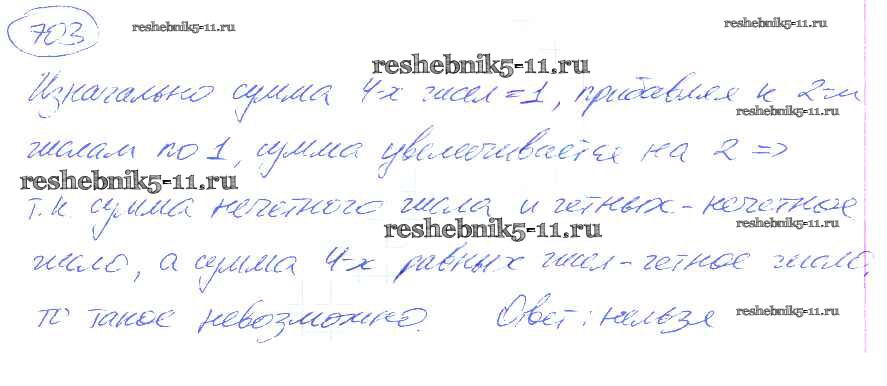 703 reshebnik5-11.ru reshebnik5-11.ru
reshebnik5-11.ru
Изначально сумма 4-х чисел = 1, прибавляя к 2-м
reshebnik5-11.ru
числам по 1, сумма увеличивается на 2 =>
reshebnik5-11.ru
т.к. сумма нечетного числа и четных - нечетное
reshebnik5-11.ru reshebnik5-11.ru
число, а сумма 4-х равных чисел - четное число,
то такое невозможно. Ответ: нельзя reshebnik5-11.ru